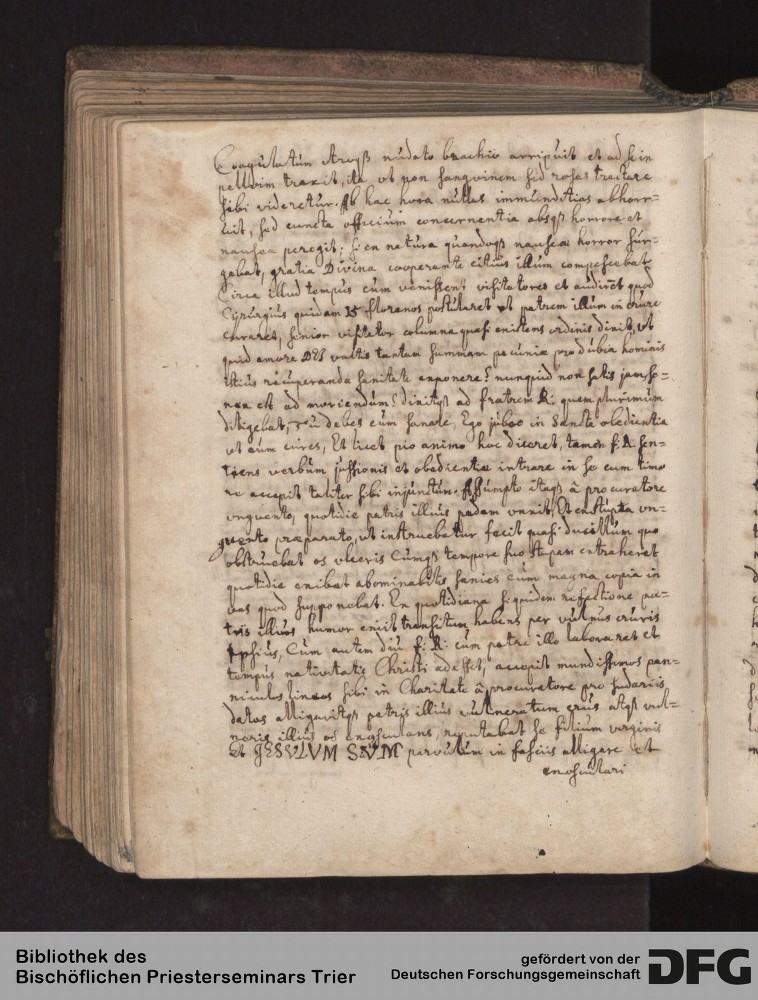 Coagulatum nudato brachio arripuit et ad se in
pelvim traxit, ita ut non sanguinem sed rosas tractare
sibi videretur. Ab hac hora nullas immunditias abhorr=
uit, sed cuncta officium concernentia absqȝ horrore et
nausea peregit; si en natura quandoqȝ nausea horror sur=
gebat, gratia Divina cooperante citius illum compescebat.
Circa illud tempus cum venissent visitatores et audirēt quod
Cyrurgius quidam 15 florenos postularet ut patrem illum in crure
curaret, senior visitator columna quasi existens ordinis dixit, ut
quid amore DEI vultis tantam summam pecuniæ pro dubia hominis
istius recuperanda sanitate exponere? nunquid non satis jam se=
nex est ad moriendum? dixitqȝ ad fratrem R: quem plurimum
diligebat, Tu debes eum sanare, Ego jubeo in sancta obedientia
ut eum cures, Et licet pio animo hoc diceret, tamen f. R. sen=
tiens verbum jussionis et obedientiæ intrare in se cum timo
re accepit taliter sibi injunctum. Assumpto itaqȝ â procuratore
unguento, quotidie patris illius pedem unxit, Et ex stuppa un=
guento præparato, ut instruebatur fecit quasi ducillum quo
obstruebat os ulceris Cumqȝ tempore suo stupam extraheret
quotidie exibat abominabilis sanies cum magna copia in
vas quod supponebat. Ex quotidiana siquidem refectione pa=
tris illius humor exiit transitum habens per vulnus cruris
ipsius, Cum autem diu f. R: cum patre illo laboraret et
tempus nativitatis Christi adesset, accepit mundissimos pan=
niculos lineos sibi in Charitate â procuratore pro sudariis
datos alligavitqȝ patris illius vulneratum crus atqȝ vul=
neris illius os exosculans, reputabat se filium virginis
et JESULUM SUUM parvulum in fasciis alligare et
exosculari
Bibliothek des
Bischöflichen Priesterseminars Trier
gefördert von der
Deutschen Forschungsgemeinschaft
DFG